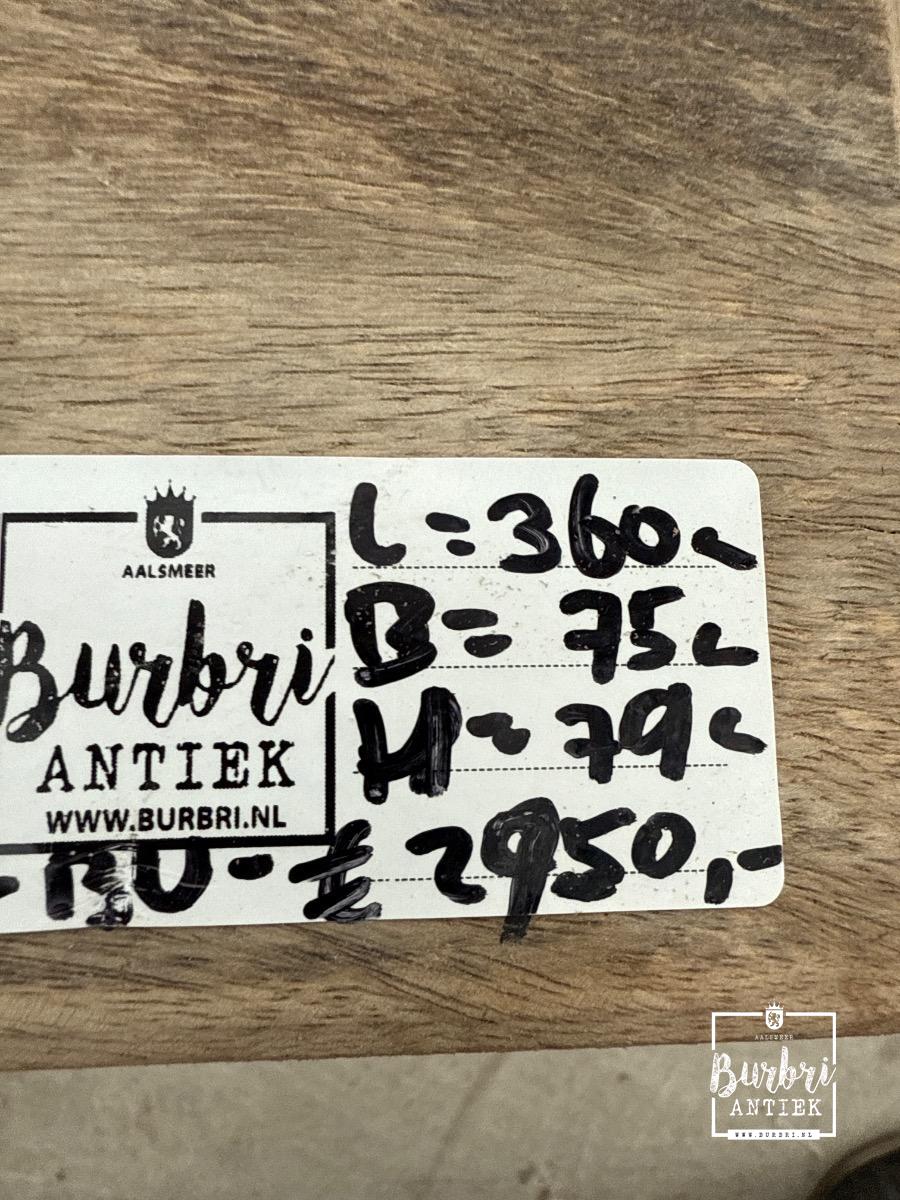 AALSMEER
Burbri
ANTIEK
WWW.BURBRI.NL
L = 360 c
B = 75 c
H = 79 c
€ 2950,-
AALSMEER
Burbri
ANTIEK
WWW.BURBRI.NL